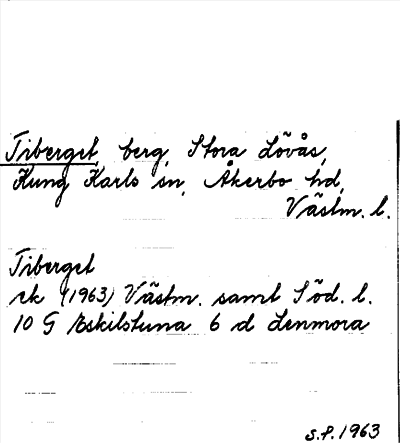 Tiberget, berg, Stora Lövås,
Kung Karls sn, Åkerbo hd,
Västm. l.
Tiberget
ek (1963) Västm. samt Söd. l.
10 G Eskilstuna 6 d Lenmora
S.P. 1963